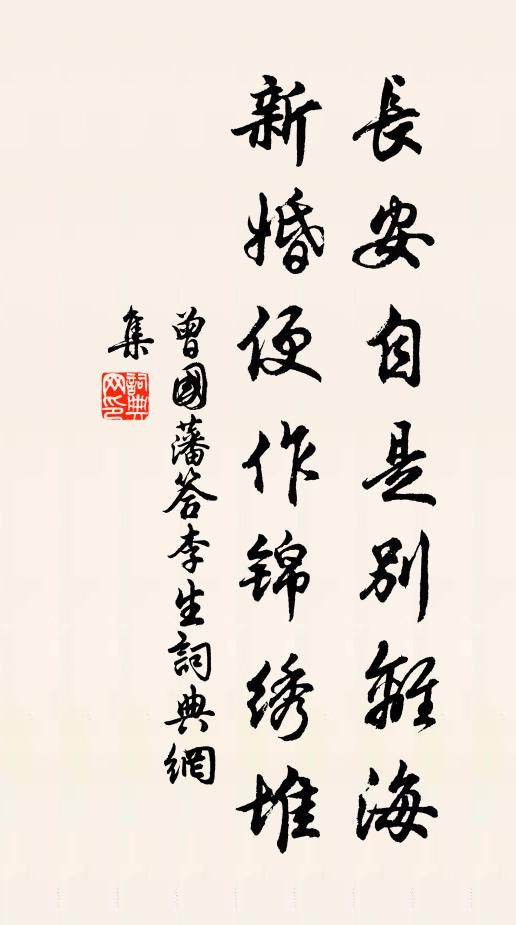 長安自是別離海
新婚便作锦绣堆
曾國藩答李生詞典網
集
詞典网印